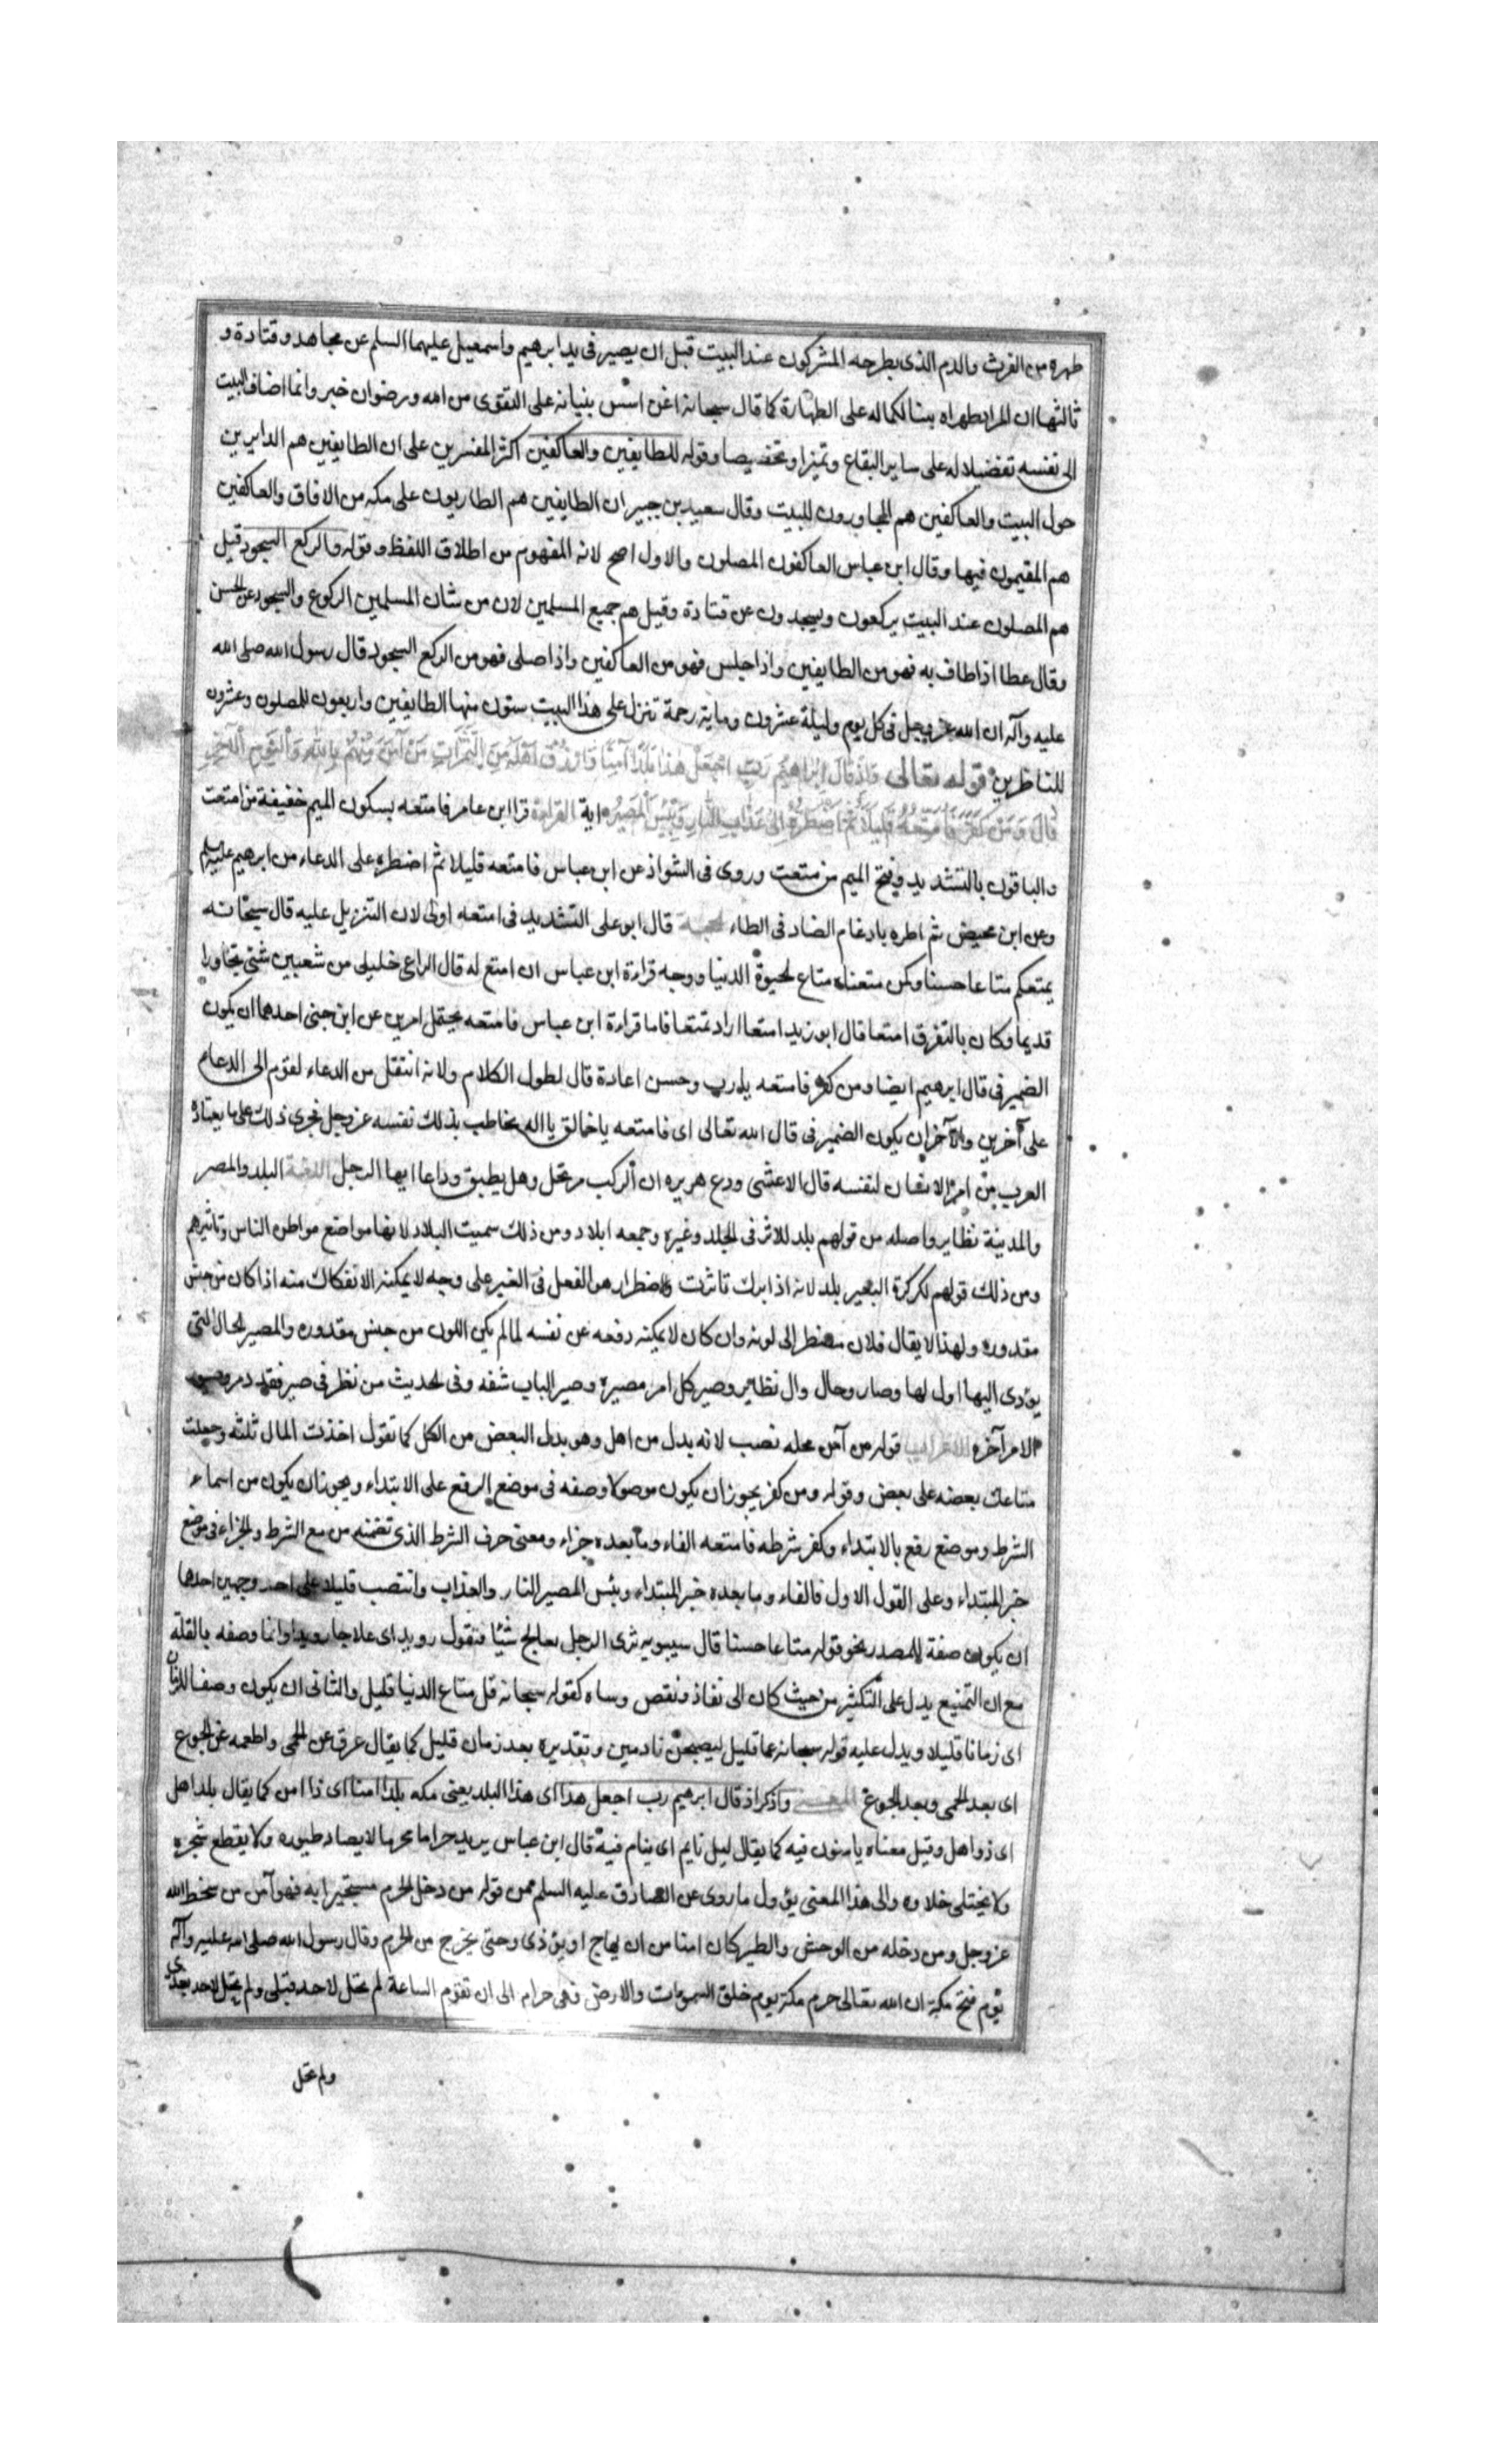 طهره من الفرث والدم الذى يطرحه المشركون عند البيت قبل ان يصير فى يد ابرهيم واسمعيل عليهما السلم عن مجاهد وقتادة و
ثالثها ان المراد طهراه ببنا لكما له على الطهارة كما قال سبحانه افمن اسس بنيانه على التقوى من الله ورضوان خير وانما اضاف البيت
الى نفسه تفضيلا له على ساير البقاع وتميزا وتخصيصا وقوله للطايفين والعاكفين اكثر المفسرين على ان الطايفين هم الدايرين
حول البيت والعاكفين هم المجاورون للبيت وقال سعيد بن جبير ان الطايفين هم الطاريون على مكه من الافاق والعاكفين
هم المقيمون فيها وقال ابن عباس العاكفون المصلون والاول اصح لانه المفهوم من اطلاق اللفظ وقوله والركع السجود قيل
هم المصلون عند البيت يركعون ويسجدون عن قتادة وقيل هم جميع المسلمين لان من شان المسلمين الركوع والسجود عن الحسن
وقال عطا اذا طاف به فهو من الطايفين واذا جلس فهو من العاكفين واذا صلى فهو من الركع السجود قال رسول الله صلى الله
عليه وآله ان الله عز وجل فى كل يوم وليلة عشرون وماية رحمة تنزل على هذا البيت ستون منها الطايفين واربعون للمصلون وعشرون
للناظرين قوله تعالى وَاِذْ قَالَ اِبْرَاهِيمُ رَبِّ اجْعَلْ هٰذَا بَلَدًا آمِنًا وَارْزُقْ اَهْلَهُ مِنَ الثَّمَرَاتِ مَنْ آمَنَ مِنْهُمْ بِاللهِ وَالْيَوْمِ الْآخِرِ
قَالَ وَمَنْ كَفَرَ فَاُمَتِّعُهُ قَلِيلًا ثُمَّ اَضْطَرُّهُ اِلى عَذَابِ النَّارِ وَبِئْسَ الْمَصِيرُ اية القراءة قرا ابن عامر فامتعه بسكون الميم خفيفة من امتعت
والباقون بالتشديد وفتح الميم من متعت وروى فى الشواذ عن ابن عباس فامتعه قليلا ثم اضطره على الدعاء من ابرهيم عليه السلم
وعن ابن محيض ثم اطره بادغام الضاد فى الطاء الحجة قال ابو على التشديد فى امتعه اولى لان التنزيل عليه قال سبحانه
يمتعكم متاعا حسنا وكمن متعناه متاع الحيوة الدنيا ووجه قراءة ابن عباس ان امتع له قال الراعى خليلى من شعبين شتى تجاورا
قديما وكان بالتفرق امتعا قال ابو زيد امتعا اراد تمتعا فاما قراءة ابن عباس فامتعه يحتمل امرين عن ابن جنى احدهما ان يكون
الضمير فى قال ابرهيم ايضا ومن كفر فامتعه يا رب وحسن اعادة قال لطول الكلام ولانه انتقل من الدعاء لقوم الى الدعاء
على آخرين والآخر ان يكون الضمير فى قال الله تعالى اى فامتعه يا خالق يا اله يخاطب بذلك نفسه عز وجل فجرى ذلك على ما يعتاده
العرب من امر الانسان لنفسه قال الاعشى ودع هريره ان الركب مرتحل وهل يطيق وداعا ايها الرجل اللغة البلد والمصر
والمدينة نظاير واصله من قولهم بلد للاثر فى الجلد وغيره وجمعه ابلاد ومن ذلك سميت البلاد لانها مواضع مواطن الناس وتاثيرهم
ومن ذلك قولهم لكركرة البعير بلد لانه اذا برك تاثرت والاضطرار هو الفعل فى الغير على وجه لا يمكنه الانفكاك منه اذا كان من جنس
مقدوره ولهذا لا يقال فلان مضطر الى لونه وان كان لا يمكنه دفعه عن نفسه لما لم يكن اللون من جنس مقدوره والمصير الحال التى
يؤدى اليها اول لها وصار وحال وال نظاير وصير كل امر مصيره وصير الباب شقه وفى الحديث من نظر فى صير فقد دمر وصيور
الامر آخره الاعراب قوله من آمن محله نصب لانه بدل من اهل وهو بدل البعض من الكل كما تقول اخذت المال ثلثه وجعلت
متاعك بعضه على بعض وقوله ومن كفر يجوز ان يكون موصولا وصفه فى موضع الرفع على الابتداء ويجوز ان يكون من اسماء
الشرط وموضع رفع بالابتداء وكفر شرطه فامتعه الفاء وما بعده جزاء ومعنى حرف الشرط الذى تضمنه من مع الشرط والجزاء فى موضع
خبر المبتداء وعلى القول الاول فالفاء وما بعده خبر المبتداء وبئس المصير النار والعذاب وانتصب قليلا على احد وجهين احدها
ان يكون صفة للمصدر نحو قوله متاعا حسنا قال سيبويه ترى الرجل يعالج شيئا فتقول رويدا اى علاجا رويدا وانما وصفه بالقلة
مع ان التمتيع يدل على التكثير من حيث كان الى نفاذ ونقص وساه كقوله سبحانه قل متاع الدنيا قليل والثانى ان يكون وصفا للزمان
اى زمانا قليلا ويدل عليه قوله سبحانه عما قليل ليصبحن نادمين وتقديره بعد زمان قليل كما يقال عرق عن الحمى واطعمه عن الجوع
اى بعد الحمى وبعد الجوع المعنى واذكر اذ قال ابرهيم رب اجعل هذا اى هذا البلد يعنى مكه بلدا امنا اى ذا امن كما يقال بلد اهل
اى ذو اهل وقيل معناه يامنون فيه كما يقال ليل نايم اى ينام فيه قال ابن عباس يريد حراما محرما لا يصاد طيوره ولا يقطع شجره
ولا يختلى خلاوه والى هذا المعنى يؤول ما روى عن الصادق عليه السلم من قوله من دخل الحرم مستجيرا به فهو آمن من سخط الله
عز وجل ومن دخله من الوحش والطير كان امنا من ان يهاج او يؤذى وحتى يخرج من الحرم وقال رسول الله صلى الله عليه وآله
يوم فتح مكة ان الله تعالى حرم مكة يوم خلق السموات والارض فهى حرام الى ان تقوم الساعة لم تحل لاحد قبلى ولم تحل لاحد بعدى
ولم تحل